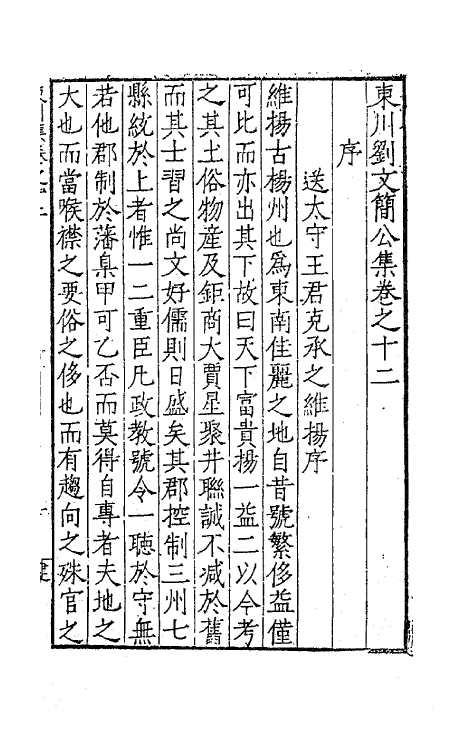 東川劉文簡公集卷之十二
序
送太守王君克承之維揚序
維揚古楊州也爲東南佳麗之地自昔號繁侈益僅
可比而亦出其下故曰天下富貴揚一益二以今考
之其土俗物產及鉅商大賈星聚井聯誠不减於舊
而其士習之尚文好儒則日盛矣其郡控制三州七
縣統於上者惟一二重臣凡政教號令一聽於守無
若他郡制於藩臬甲可乙否而莫得自專者夫地之
大也而當喉襟之要俗之侈也而有趨向之殊官之